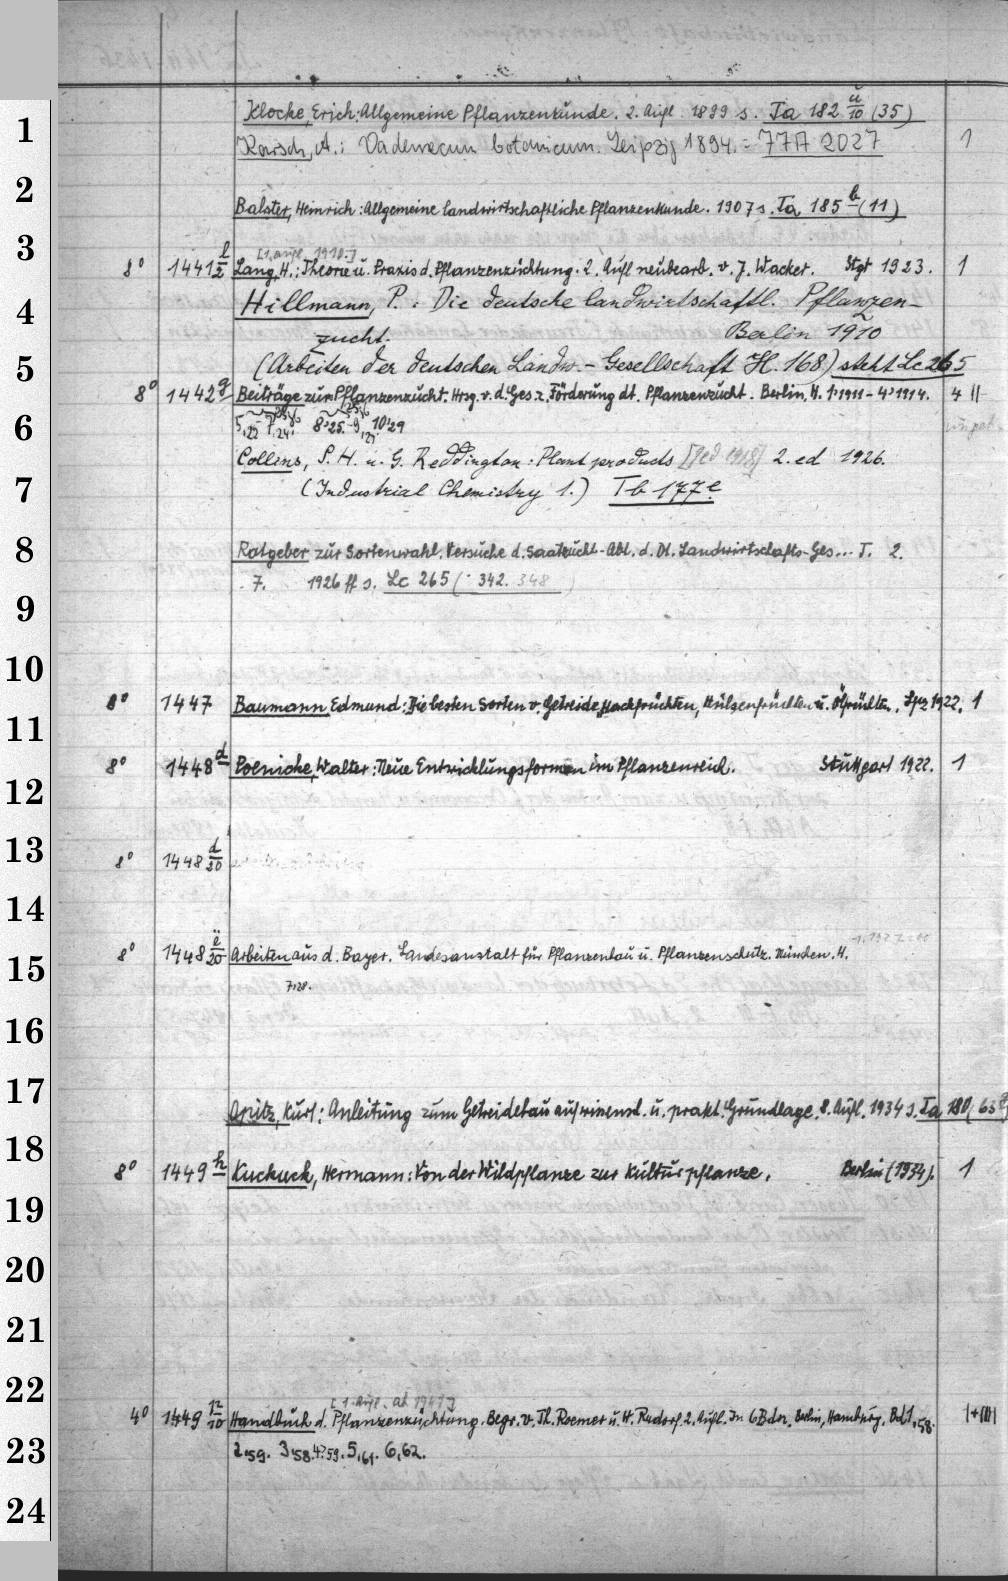 Klocke, Erich: Allgemeine Pflanzenkunde. 2. Aufl. 1899 s. Ta 182 ü/10 (35)
Karsch, A.: Vademecum botanicum. Leipzig 1894. = 77A 2027 1
Balster, Heinrich: Allgemeine landwirtschaftliche Pflanzenkunde. 1907 s. Ta 185 b (11)
[1. Aufl. 1910.]
8° 1441 l/2 Lang, H.: Theorie u. Praxis d. Pflanzenzüchtung. 2. Aufl neubearb. v. J. Wacker. Stgt 1923. 1
Hillmann, P.: Die deutsche landwirtschaftl. Pflanzen-
zucht. Berlin 1910
(Arbeiten der deutschen Landw.-Gesellschaft H. 168) steht Lc 265
8° 1442 g Beiträge zur Pflanzenzucht. Hrsg. v. d. Ges. z. Förderung dt. Pflanzenzucht. Berlin, H. 1, 1911 - 4, 1914. 4 II
Collins, S. H. u. G. Reddington: Plant products 2. ed 1926.
(Industrial Chemistry 1.) Tb 177 e
Ratgeber zur Sortenwahl. Versuche d. Saatzucht-Abt. d. Dt. Landwirtschafts-Ges... T. 2.
7. 1926 ff s. Lc 265 (342. 348)
8° 1447 Baumann, Edmund: Die besten Sorten v. Getreide, Hackfrüchten, Hülsenfrüchten u. Ölfrüchten. Lpz 1922. 1
8° 1448 d Poenicke, Walter: Neue Entwicklungsformen im Pflanzenreich. Stuttgart 1922. 1
8° 1448 d/20
8° 1448 ü/20 Arbeiten aus d. Bayer. Landesanstalt für Pflanzenbau u. Pflanzenschutz. München. H.
7, 28.
Opitz, Kurt: Anleitung zum Getreidebau auf wissensch. u. prakt. Grundlage. 8. Aufl. 1934 s. Ta 180, 63
8° 1449 h Kuckuck, Hermann: Von der Wildpflanze zur Kulturpflanze. Berlin (1934). 1
[1. Aufl. ab 1941]
4° 1449 n/10 Handbuch d. Pflanzenzüchtung. Begr. v. Th. Roemer u. W. Rudorf. 2. Aufl. In 6 Bdn. Berlin, Hamburg, Bd. 1, 58.
2, 59. 3, 58. 4, 59. 5, 61. 6, 62.